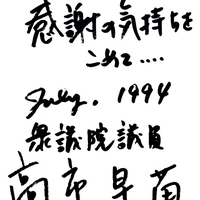 感謝の気持ちを
こめて....
July. 1994
衆議院議員
高市早苗